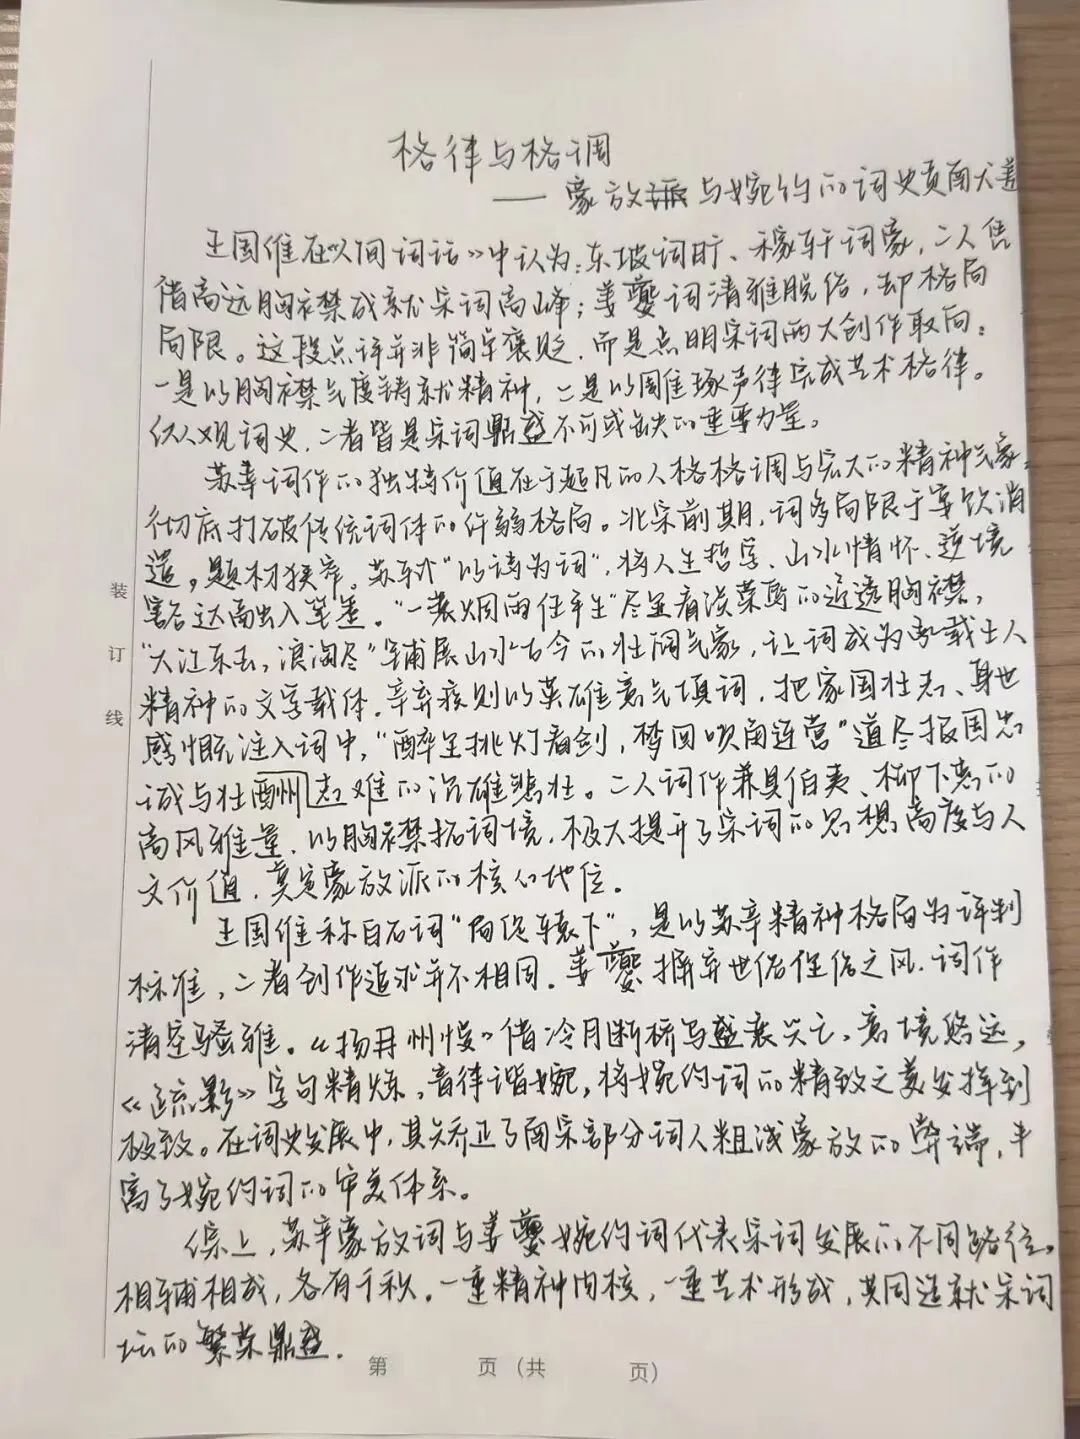 格律与格调
——豪放派与婉约的词史贡献尤姜
王国维在《人间词话》中认为：东坡词旷、稼轩词豪，二人凭
借高远胸襟成就宋词高峰；姜夔词清雅脱俗，却格局
局限。这段点评并非简单褒贬，而是点明宋词两大创作取向：
一是以胸襟气度铸就精神，二是以周隹琢声律完成艺术格律。
纵观词史，二者皆是宋词鼎盛不可或缺的重要力量。
苏辛词作的独特价值在于超凡的人格格调与宏大的精神气象，
彻底打破传统词体的纤弱格局。北宋前期，词多局限于宴饮消
遣，题材狭窄。苏轼"以诗为词"，将人生哲学、山水情怀、逆境
豁达而出入笔墨。"一蓑烟雨任平生"尽显看淡荣辱的通透胸襟，
"大江东去，浪淘尽"铺展山水古今的壮阔气象，让词成为承载士人
精神的文字载体。辛弃疾则以英雄意气填词，把家国壮志、身世
感慨注入词中，"醉里挑灯看剑，梦回吹角连营"道尽报国忠
诚与壮酬志难的沉雄悲壮。二人词作兼具伯夷、柳下惠的
高风雅量，以胸襟拓词境，极大提升了宋词的思想高度与人
文价值，奠定豪放派的核心地位。
王国维称白石词"局促辕下"，是以苏辛精神格局为评判
标准，二者创作追求并不相同。姜夔摒弃世俗俗之风，词作
清空骚雅。《扬州慢》借冷月断桥写盛衰兴亡，意境悠远，
《疏影》字句精炼，音律谐婉，将婉约词的精致之美发挥到
极致。在词史发展中，其矫正了南宋部分词人粗浅豪放的弊端，丰
富了婉约词的审美体系。
综上，苏辛豪放词与姜夔婉约词代表宋词发展的不同路径，
相辅相成，各有千秋。一重精神内核，一重艺术形成，共同造就宋词
坛的繁荣鼎盛。
装
订
线
第 页（共 页）